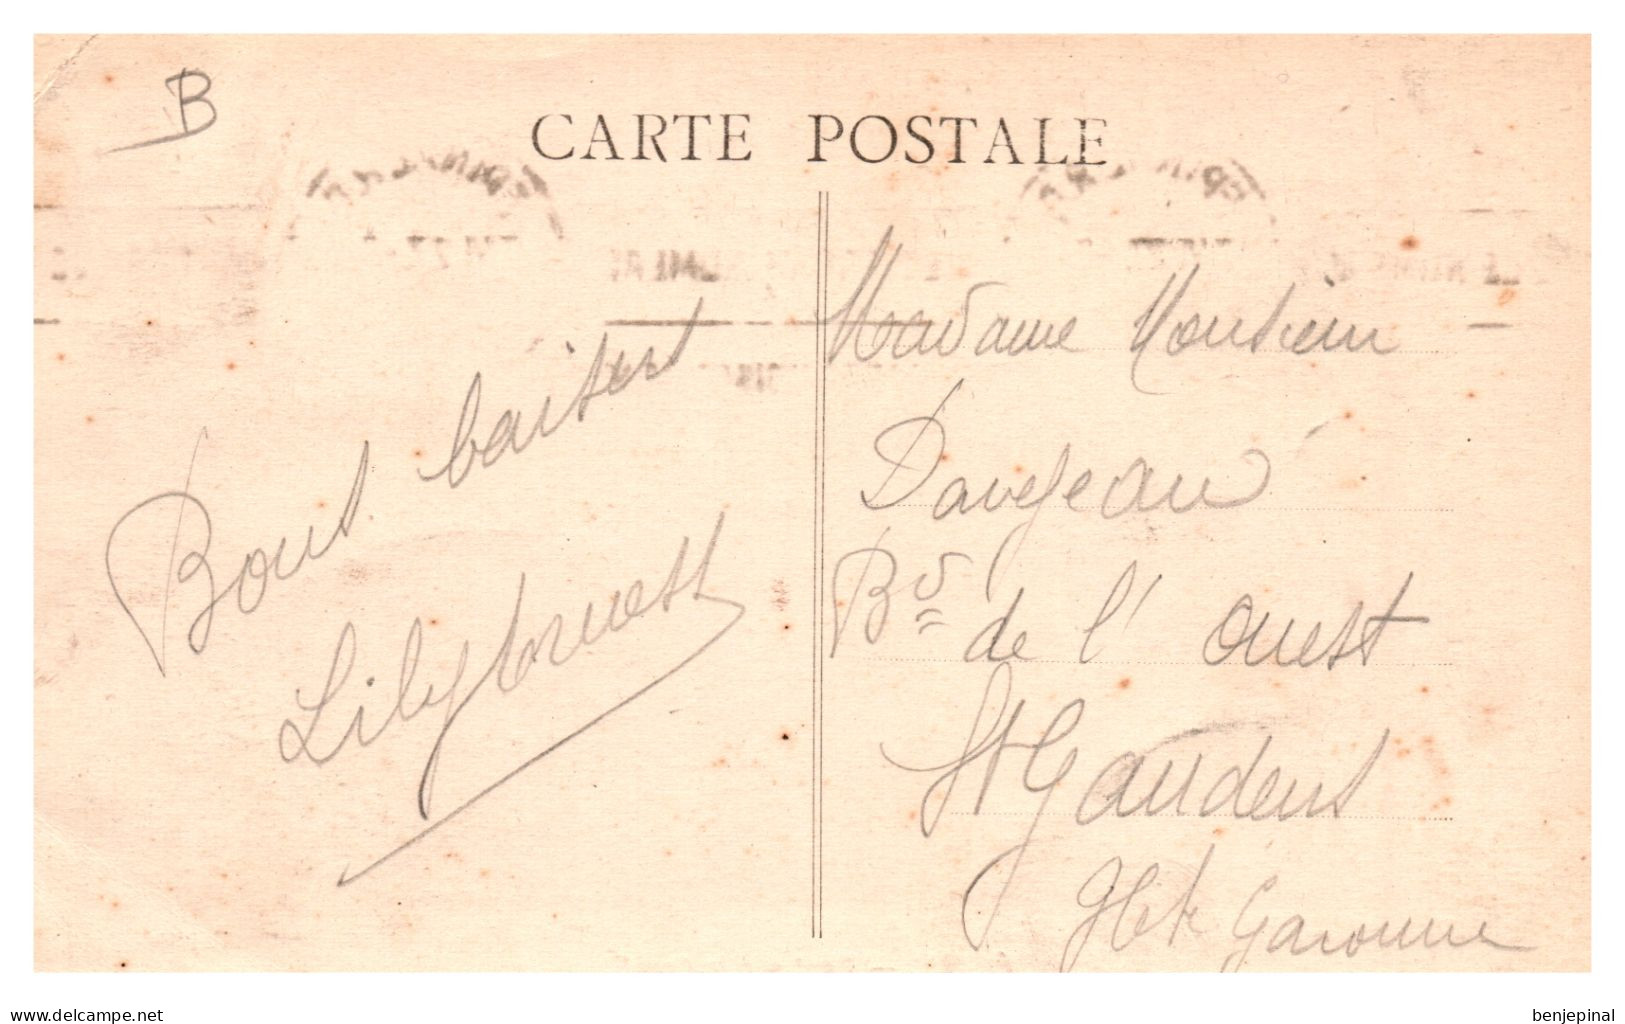 B
CARTE POSTALE
Bons baisers
Madame Monsieur
Bd de l'ouest
St Gaudens
Hte Garonne
www.delcampe.net
benjepinal